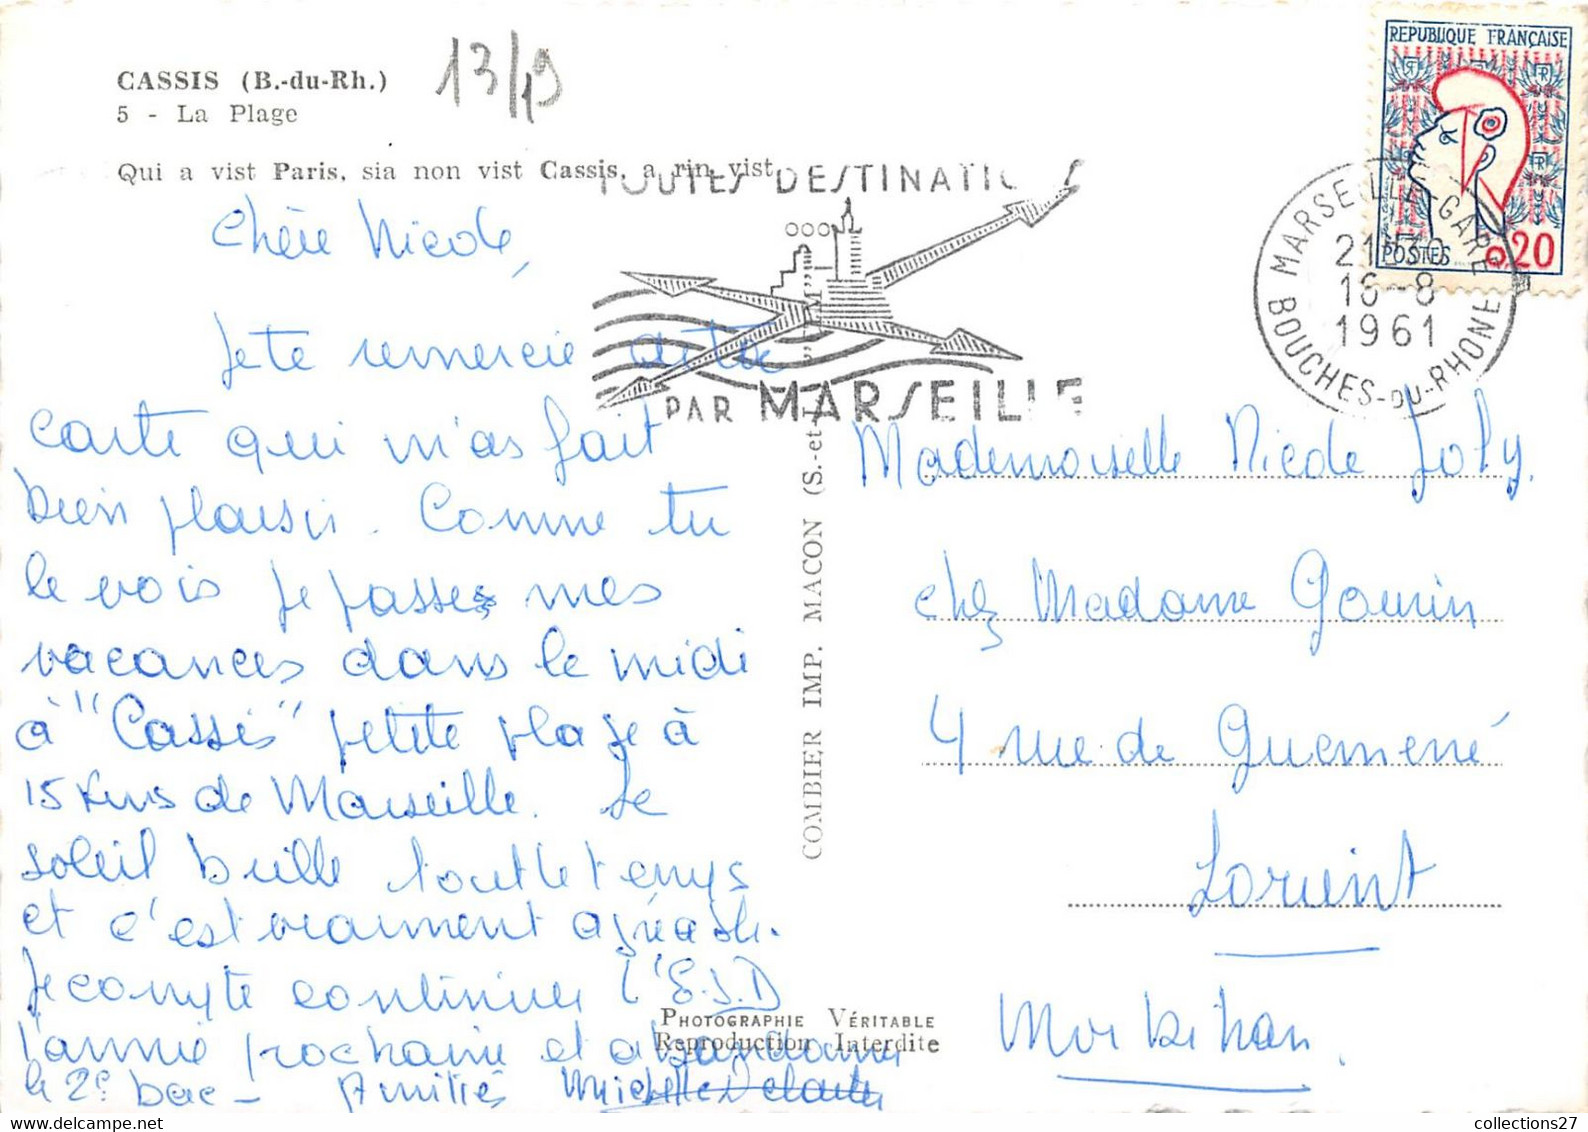 CASSIS (B.-du-Rh.)
5 - La Plage
13/19
Qui a vist Paris, sia non vist Cassis, a rin vist
Chère Nicole,
Je te remercie de ta
carte qui m'as fait
bien plaisir. Comme tu
le vois je passe mes
vacances dans le midi
à "Cassis" petite plage à
15 kms de Marseille. Le
soleil brille tout le temps
et c'est vraiment agréable.
Je compte continuer l'E.S.D
l'année prochaine et abandonner
le 2e bac - Amitiés Michelle
TOUTES DESTINATIONS
PAR MARSEILLE
REPUBLIQUE FRANÇAISE
POSTES 0,20
MARSEILLE-GARE
21H30
16-8
1961
BOUCHES-DU-RHONE
COMBIER IMP. MACON (S.-et-L.) "CIM"
Mademoiselle Nicole Joly.
chez Madame Gourin
4 rue de Guemené
Lorient
Morbihan.
PHOTOGRAPHIE VÉRITABLE
Reproduction Interdite
collections27